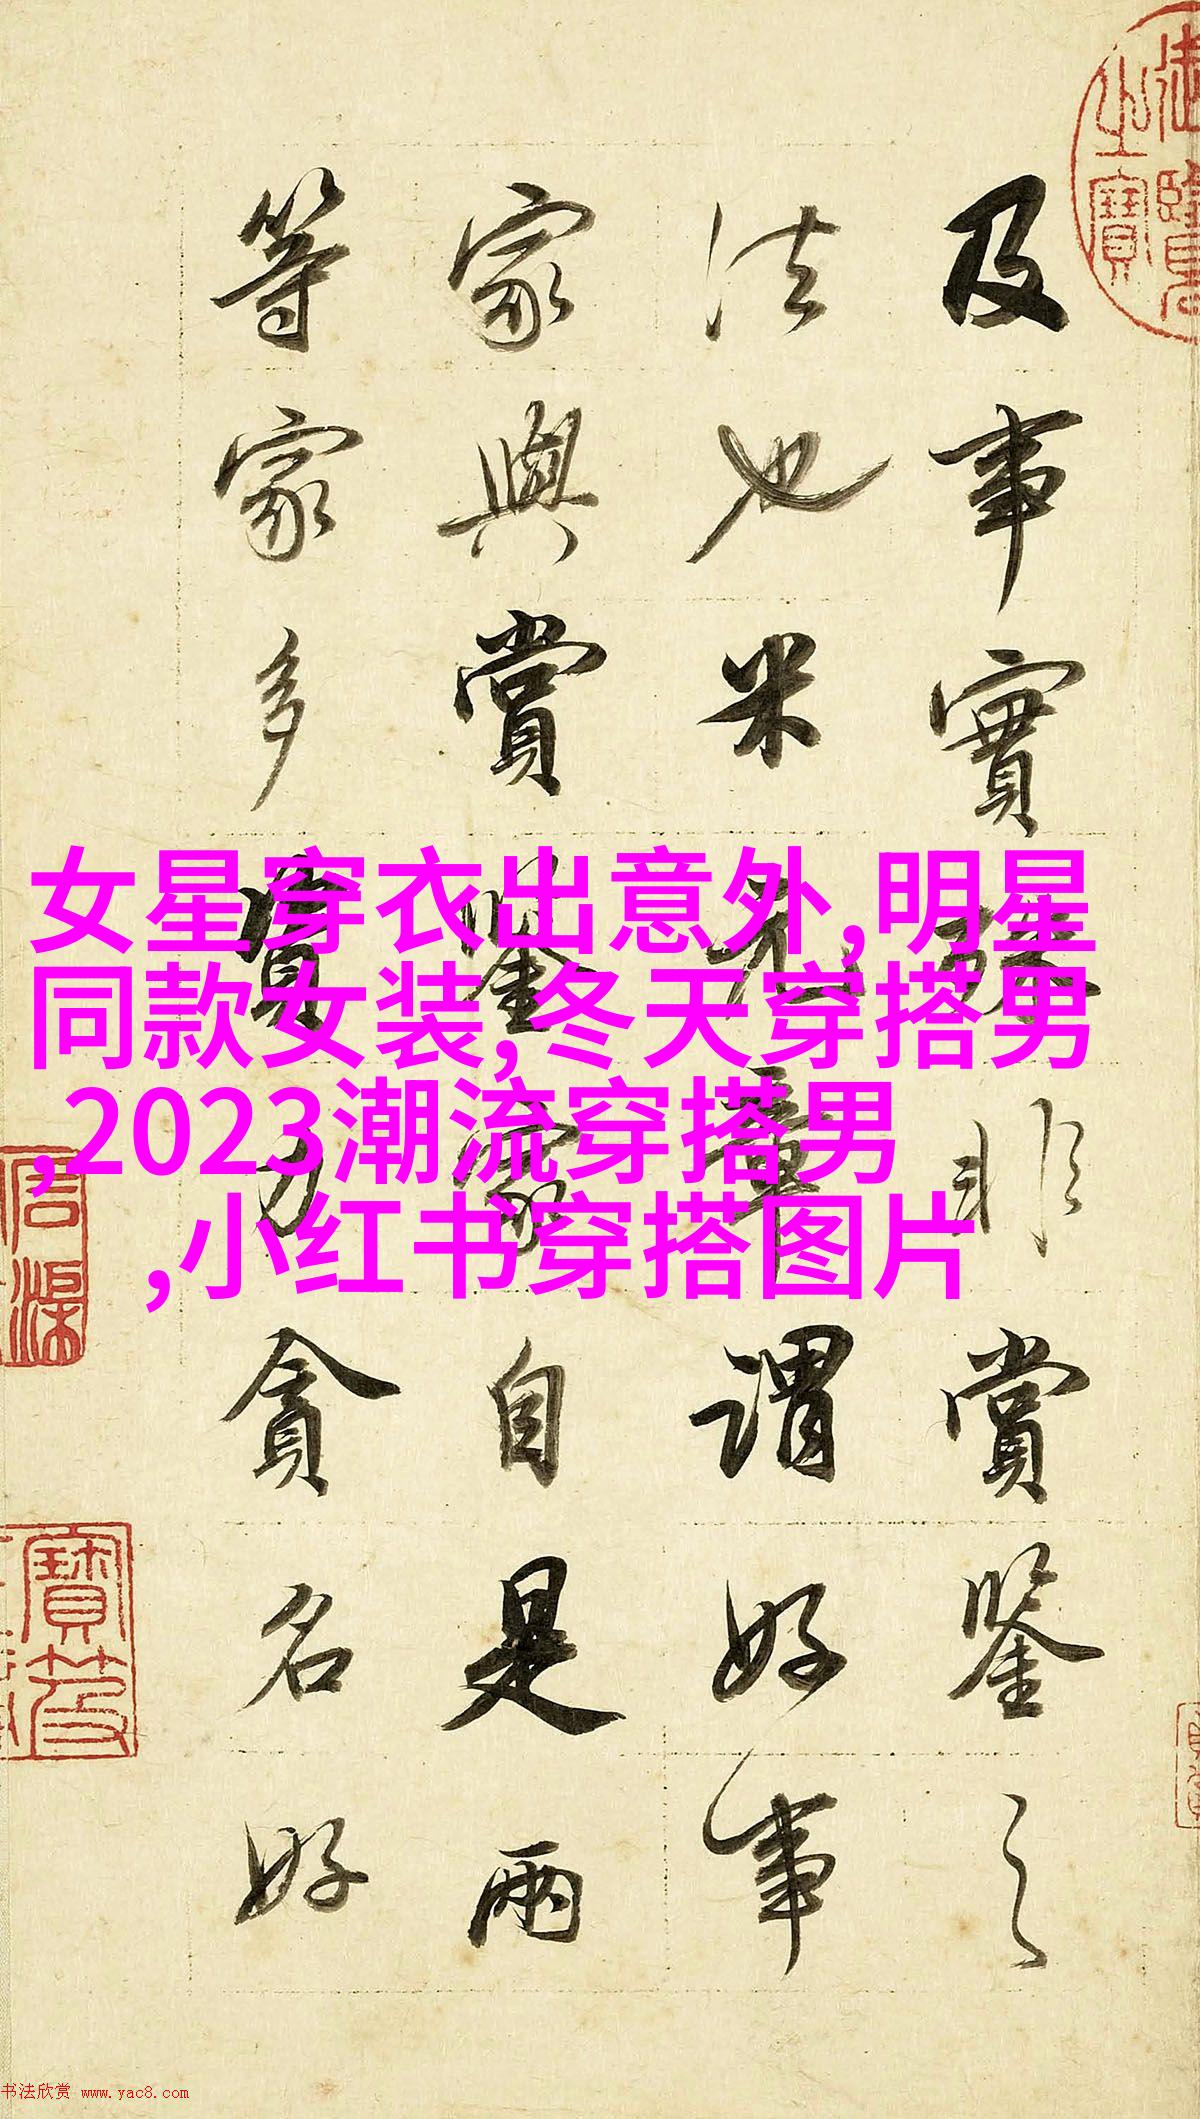 及事實殊非賞鑒之
法也米元章謂好事
家與賞鑒家自是兩
等家多資力貪名好
女星穿衣出意外,明星
同款女装,冬天穿搭男
,2023潮流穿搭男
,小红书穿搭图片
书法欣赏 www.yac8.com